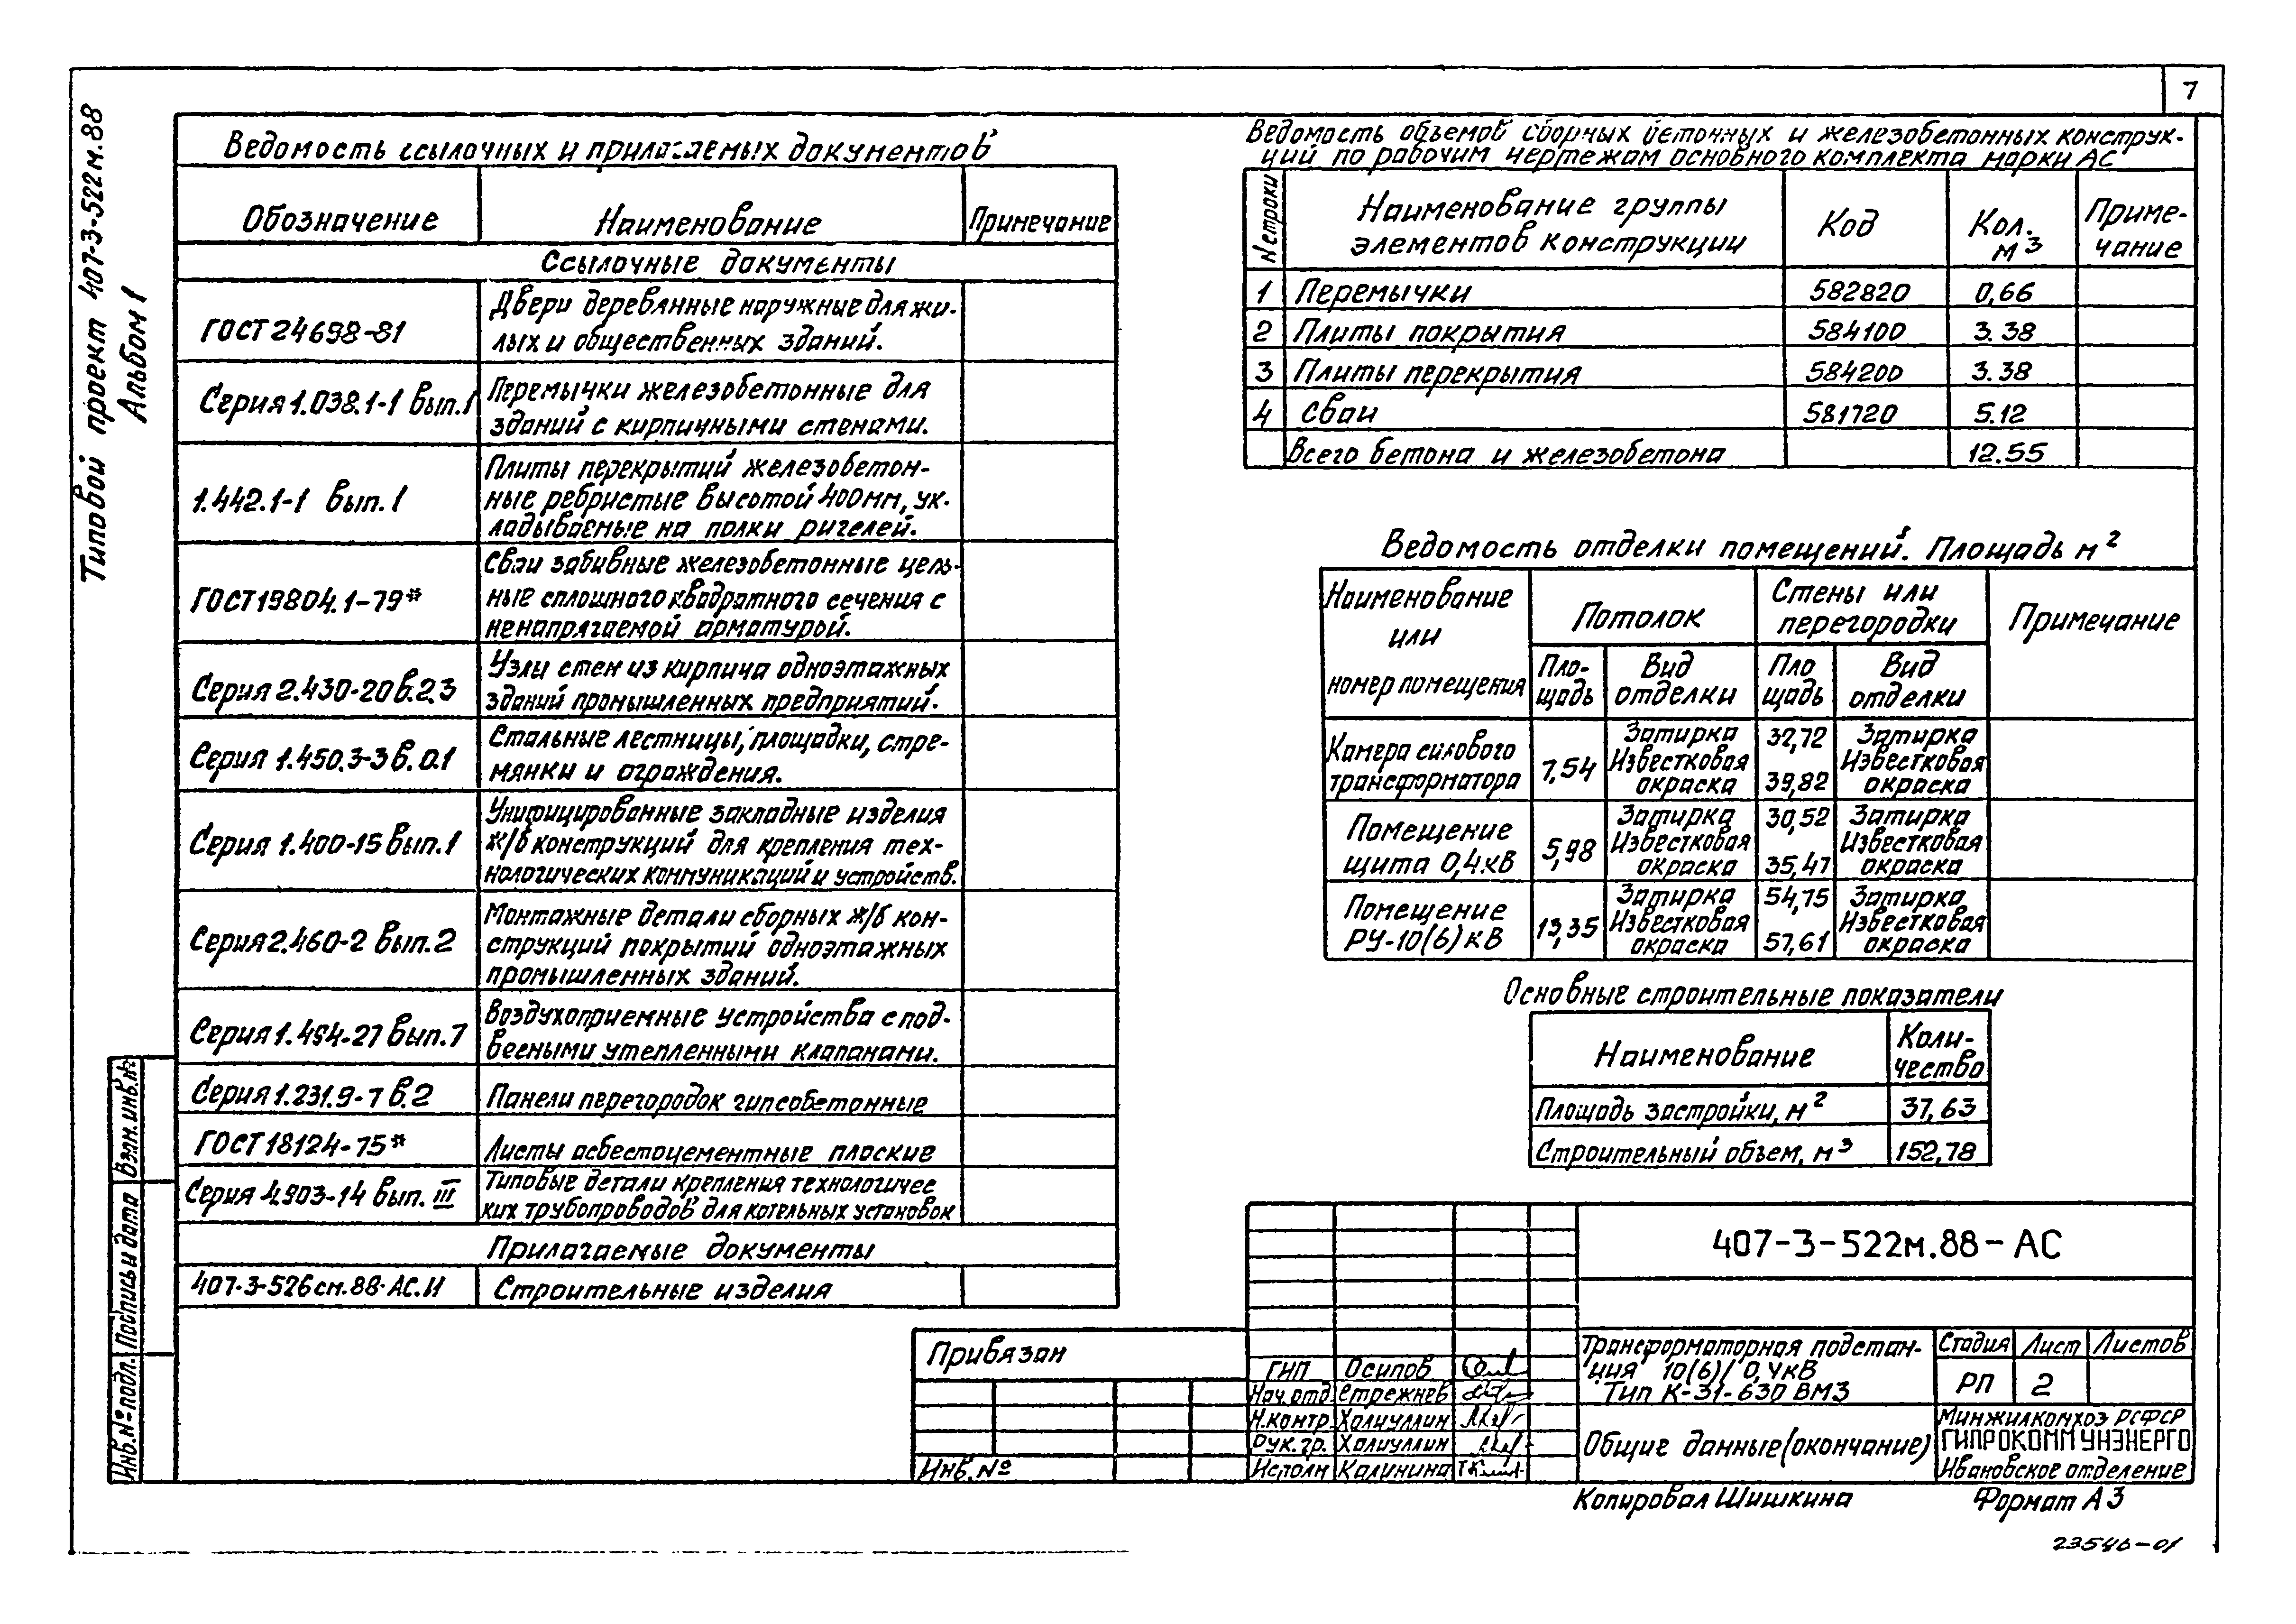 7
Типовой проект 407-3-522м.88
Альбом 1
Ведомость ссылочных и прилагаемых документов
Обозначение Наименование Примечание
Ссылочные документы
ГОСТ 24698-81 Двери деревянные наружные для жи-
лых и общественных зданий.
Серия 1.038.1-1 вып.1 Перемычки железобетонные для
зданий с кирпичными стенами.
1.442.1-1 вып.1 Плиты перекрытий железобетон-
ные ребристые высотой 400мм, ук-
ладываемые на полки ригелей.
ГОСТ 19804.1-79* Сваи забивные железобетонные цель-
ные сплошного квадратного сечения с
ненапрягаемой арматурой.
Серия 2.430-20 в.2.3 Узлы стен из кирпича одноэтажных
зданий промышленных предприятий.
Серия 1.450.3-3 в.0.1 Стальные лестницы, площадки, стре-
мянки и ограждения.
Серия 1.400-15 вып.1 Унифицированные закладные изделия
ж/б конструкций для крепления тех-
нологических коммуникаций и устройств.
Серия 2.460-2 вып.2 Монтажные детали сборных ж/б кон-
струкций покрытий одноэтажных
промышленных зданий.
Серия 1.494-27 вып.7 Воздухоприемные устройства с под-
весными утепленными клапанами.
Серия 1.231.9-7 в.2 Панели перегородок гипсобетонные
ГОСТ 18124-75* Листы асбестоцементные плоские
Серия 4.903-14 вып. III Типовые детали крепления технологичес
ких трубопроводов для котельных установок
Прилагаемые документы
407-3-526см.88-АС.И Строительные изделия
Ведомость объемов сборных бетонных и железобетонных конструк-
ций по рабочим чертежам основного комплекта марки АС
N строки Наименование группы элементов конструкции Код Кол. м3 Приме-
чание
1 Перемычки 582820 0,66
2 Плиты покрытия 584100 3.38
3 Плиты перекрытия 584200 3.38
4 Сваи 581720 5.12
Всего бетона и железобетона 12.55
Ведомость отделки помещений. Площадь м2
Наименование или номер помещения Потолок Стены или перегородки Примечание
Пло-
щадь Вид отделки Пло
щадь Вид отделки
Камера силового трансформатора 7,54 Затирка Известковая окраска 32,72 39,82 Затирка Известковая окраска
Помещение щита 0,4кВ 5,98 Затирка Известковая окраска 30,52 35,47 Затирка Известковая окраска
Помещение РУ-10(6)кВ 13,35 Затирка Известковая окраска 54,75 57,61 Затирка Известковая окраска
Основные строительные показатели
Наименование Коли-
чество
Площадь застройки, м2 37,63
Строительный объем, м3 152,78
407-3-522м.88-АС
Привязан
Инв.№
ГИП Осипов
Нач.отд. Стрежнев
Н.контр. Халиуллин
Рук.гр. Халиуллин
Исполн Калинина
Трансформаторная подстан-
ция 10(6)/0,4кВ
Тип К-31-630 ВМЗ
Стадия Лист Листов
РП 2
Общие данные (окончание)
Минжилкомхоз РСФСР
ГИПРОКОММУНЭНЕРГО
Ивановское отделение
Инв.№подл. Подпись и дата Взам.инв.№
Копировал Шишкина Формат А3
23546-01